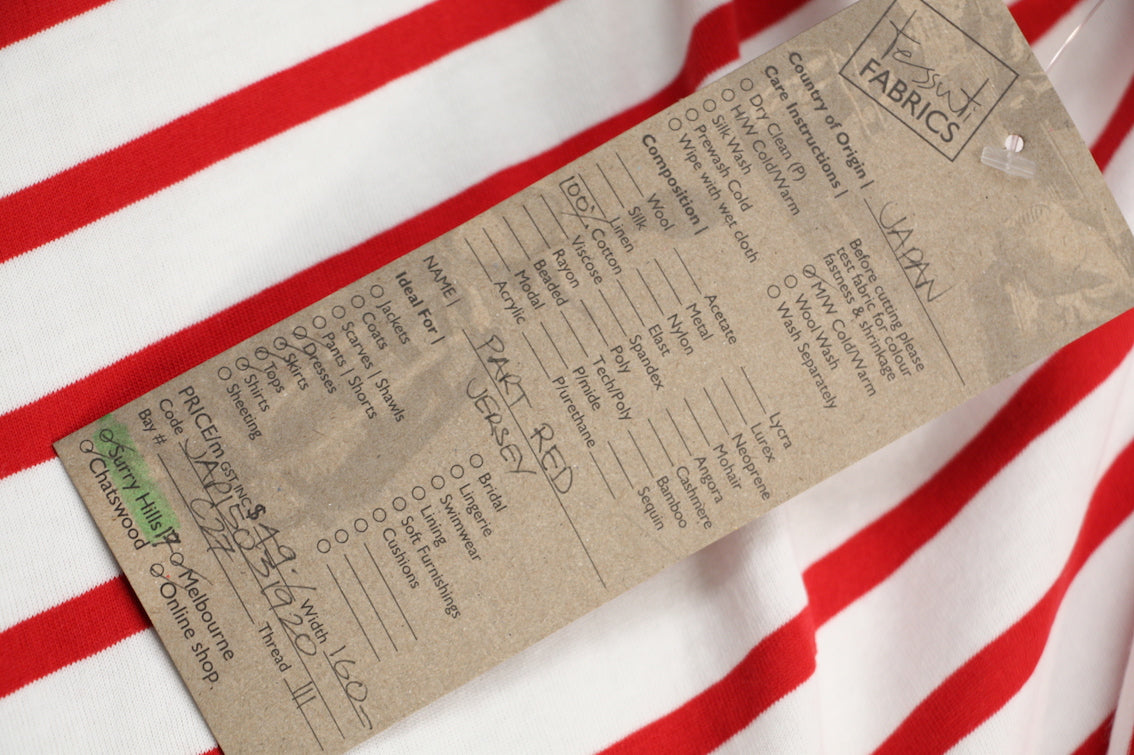 tessuti
FABRICS
Country of Origin | JAPAN
Care Instructions |
Dry Clean (P)
H/W Cold/Warm
Silk Wash
Prewash Cold
Wipe with wet cloth
Before cutting please
test fabric for colour
fastness & shrinkage
M/W Cold/Warm
Wool Wash
Wash Separately
Composition |
Wool
Silk
Linen
100% Cotton
Viscose
Rayon
Beaded
Modal
Acrylic
Acetate
Metal
Nylon
Elast
Spandex
Poly
Tech/Poly
P/mide
P/urethane
Lycra
Lurex
Neoprene
Mohair
Angora
Cashmere
Bamboo
Sequin
NAME | PART RED
JERSEY
Ideal For |
Jackets
Coats
Scarves | Shawls
Pants | Shorts
Dresses
Skirts
Tops
Shirts
Sheeting
Bridal
Lingerie
Swimwear
Lining
Soft Furnishings
Cushions
PRICE/m GST INC $ 49.- Width 160
Code Thread III
Bay # 027
Surry Hills
Melbourne
Chatswood
Online shop.